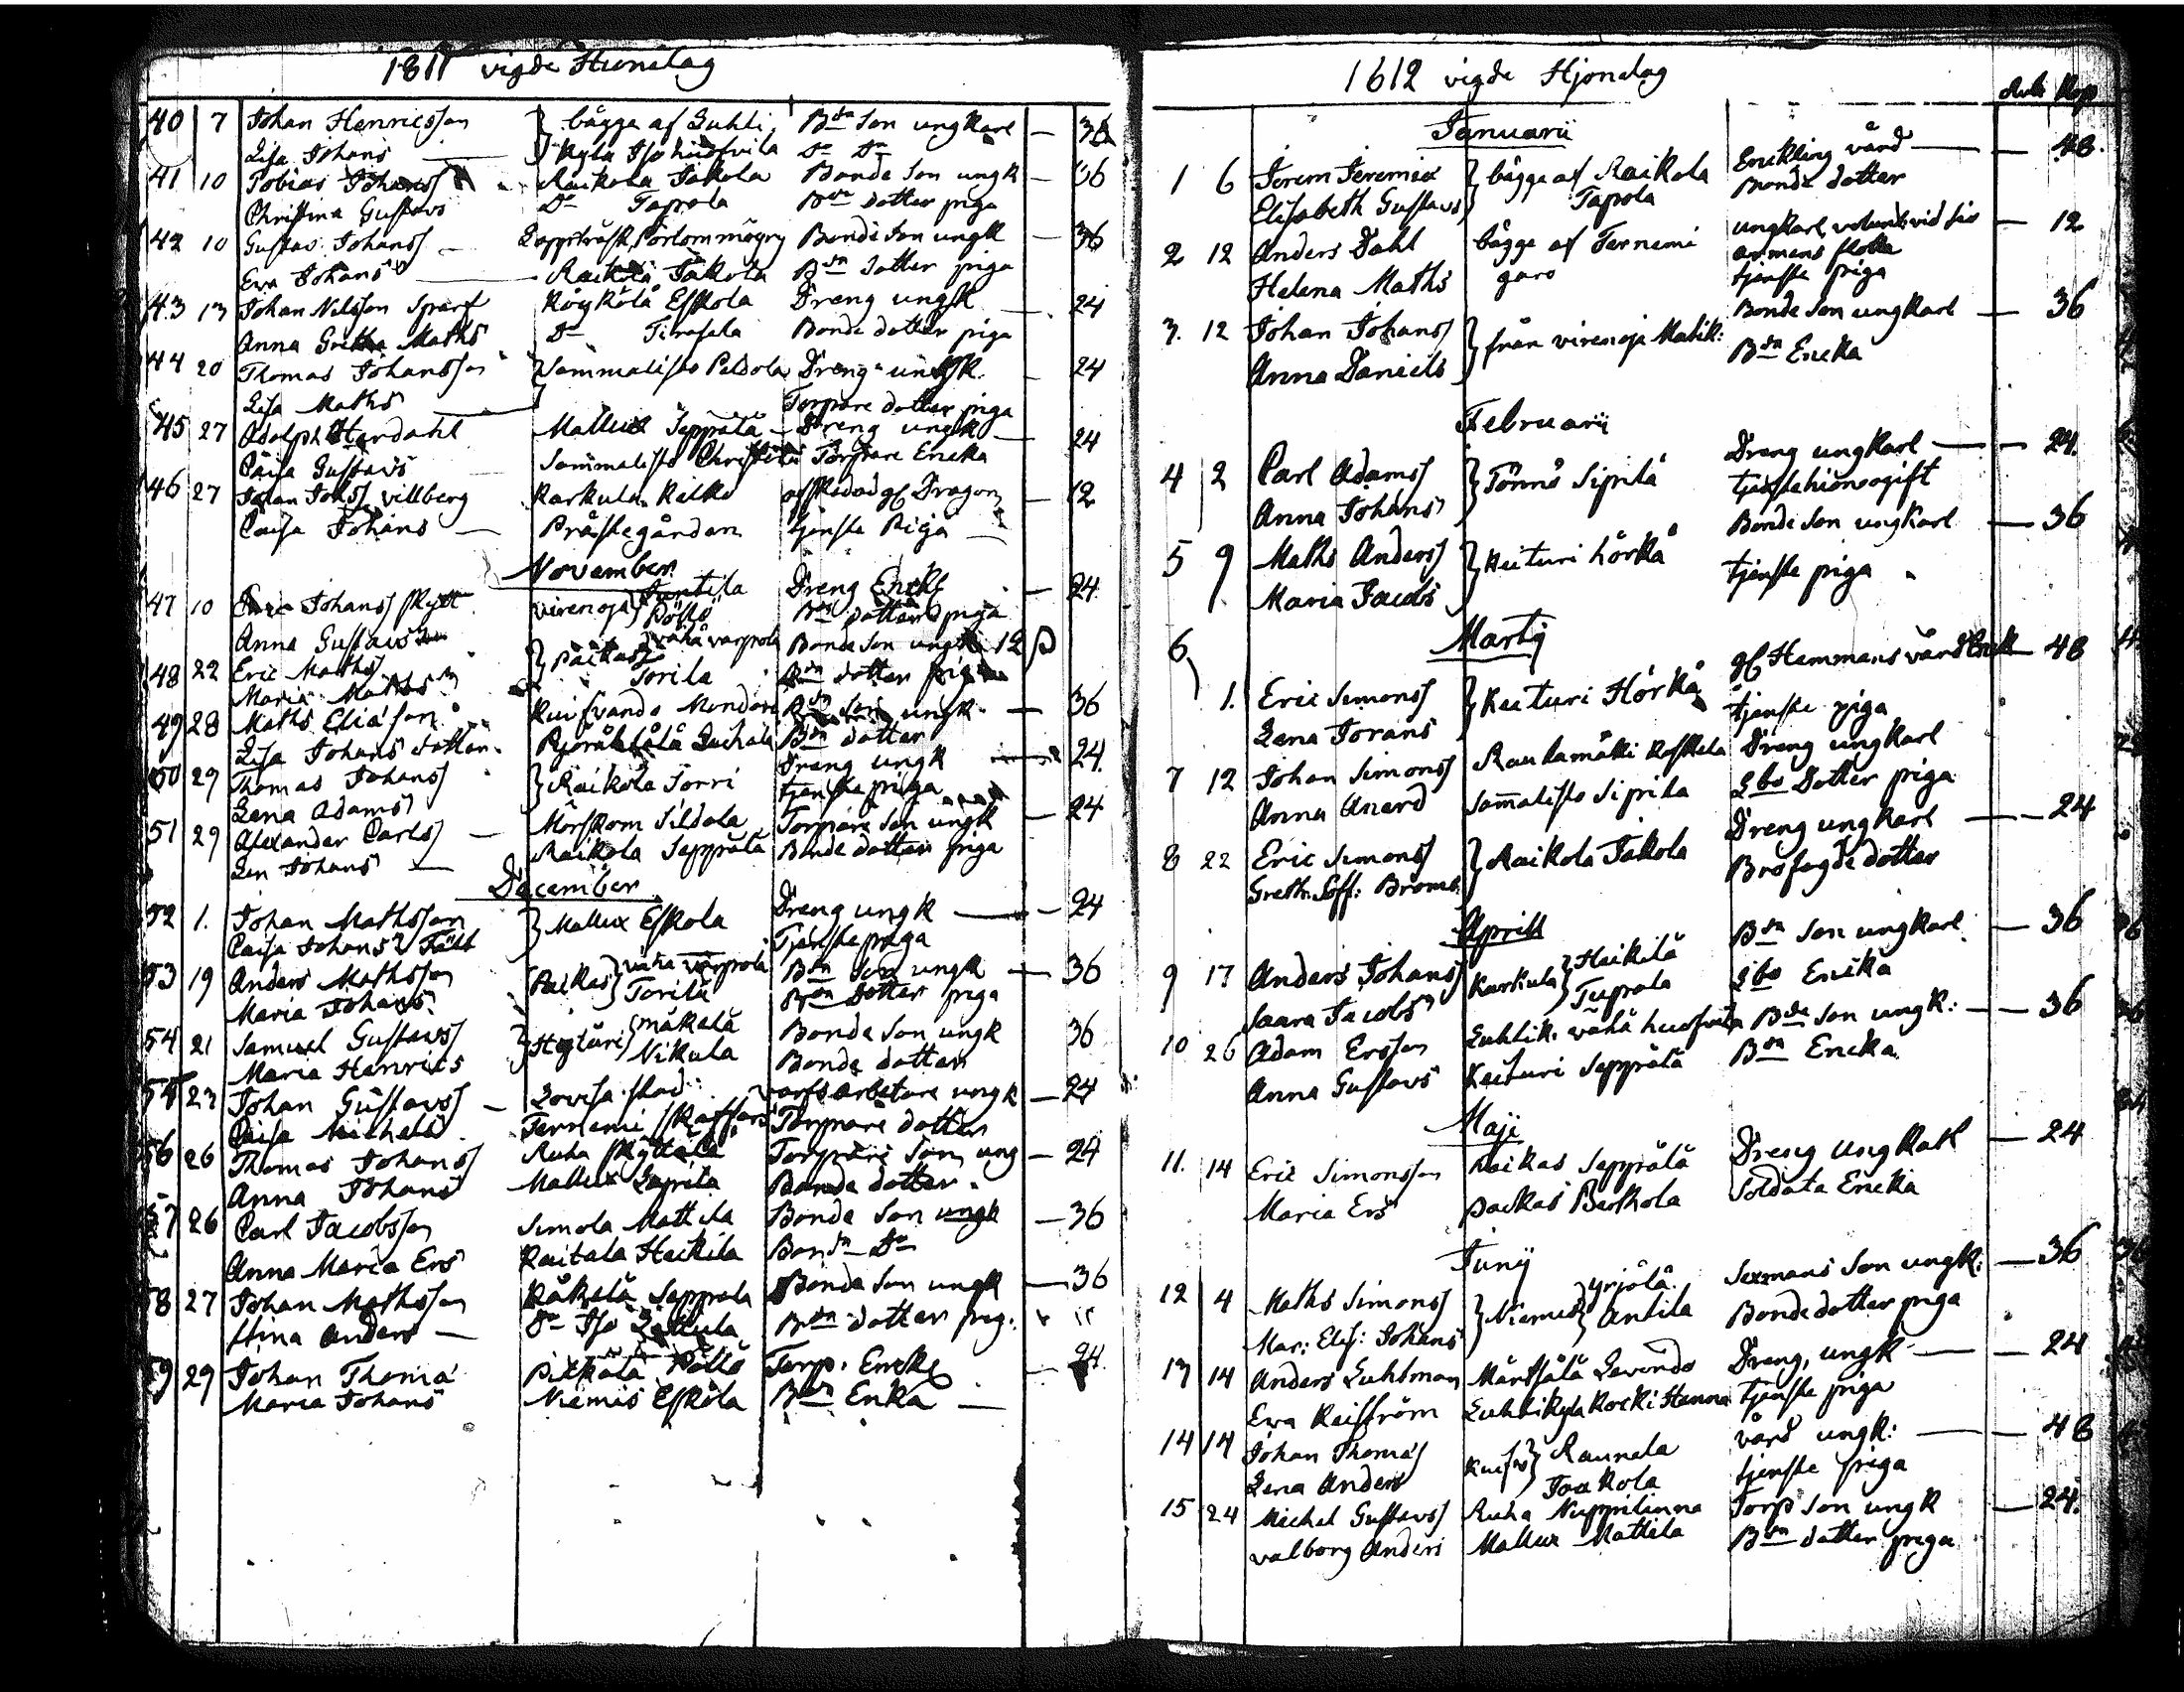 1811 vigde Hionelag
40 7 Johan Henricsson } bägge af Luhti Bdn Son ungkarl — 36
Lisa Johans — kyla Iso hudfvila Do Do
41 10 Tobias Johanss Raikola Jakola Bonde Son ungk — 36
Christina Gustavs Do Tapola Bdn dotter piga
42 10 Gustav Johanss — Lappträsk Porlom mögry Bonde Son ungk — 36
Eva Johans — Raikola Jakola Bdn dotter piga
43 13 Johan Nilsson Sparf Köykölä Eskola Dreng ungk — 24
Anna Gretha Maths Do Tirasela Bonde dotter piga
44 20 Thomas Johansson } Sammalisto Peldola Dreng ungk — 24
Lisa Maths — Torpare dotter piga
45 27 Adolph Herdahl Mallux Seppälä — Dreng ungk — 24
Caisa Gustavs Sammalisto Christila Torpare Encka
46 27 Johan Johss villberg Karkula Kilko afskedad gl Dragon — 12
Caisa Johans — Prästegården tjenste Piga —
November
47 10 Johanss Skytt virenoja } Juntila Pöllö Dreng Enckl — 24
Anna Gustavs Bdn dotter piga
48 22 Eric Mathss } Paikas } vähä varpola Bonde Son ungk 12 β
Maria Maths Torila Bdn dotter piga
49 28 Maths Eliason Kuisvando Mondare Bdn Son ungk — 36
Lisa Johans dotter Pyörähtälä Luhala Bdn dotter
50 29 Thomas Johanss } Raikola Torri Dreng ungk — 24.
Lena Adams tjenste piga
51 29 Alexander Carlss — Mörskom Sildala Torpare Son ungk — 24
Len Johans — Raikola Seppälä Bonde dotter piga
December
52 1. Johan Mathsson } Mallux Eskola Dreng ungk — 24
Caisa Johans Fält Tjenste piga
53 19 Anders Mathsson Paikas } vähä varpola Bdn Son ungk — 36
Maria Johans Torila Bdn Dotter piga
54 21 Samuel Gustavss } Heituri } mäkelä Bonde Son ungk 36
Maria Henrics Nikula Bonde dotter
55 23 Johan Gustavss — Lovisa stad varfs arbetare ungk — 24
Caisa Michels Ternemi Skaffars Torpare dotter
56 26 Thomas Johanss Ruha Skyttälä Torpare Son ung — 24
Anna Johans Mallux Siprilä Bonde dotter
57 26 Carl Jacobsson Simola Mattila Bonde Son ungk — 36
Anna Maria Ers Raitala Heikila Bondn Do
58 27 Johan Mathsson Käkelä Seppola Bonde Son ungk — 36
Stina Anders — Do Iso Bdn dotter pig.
59 29 Johan Thoma Pilkala Pöllö Torp. Enckl — 24.
Maria Johans Niemis Eskola Bdn Enka —
1812 vigde Hjonelag
Rub Kop
Januarii
1 6 Jerem Jeremiæ } bägge af Raikola Enckling värd — 48.
Elisabeth Gustavs Tapola Bonde dotter
2 12 Anders Dahl bägge af Ternemi ungkarl volunt. vid sio — 12
armens flotta
Helena Maths garo tjenste piga
3. 12 Johan Johanss } från virenoja Matik: Bonde Son ungkarl — 36
Anna Daniels Bdn Encka
Februarii
4 2 Carl Adamss } Tönnö Siprilä Dreng ungkarl — 24.
Anna Johans tjenstehion ogift
5 9 Maths Anderss } Keituri hörkä Bonde Son ungkarl — 36
Maria Jacobs tjenste piga
Martij
6 1. Eric Simonss } Keituri Hörkä gl Hemmans värd Enck — 48
Lena Jorans tjenste piga
7 12 Johan Simonss Raukamäki Koskela Dreng ungkarl
Anna Anerd Sammalisto Siprila Lbo Dotter piga
8 22 Eric Simonss } Raikola Jakola Dreng ungkarl — 24
Greth. Soff: Broms Brofogde dotter
Aprill
9 17 Anders Johanss Karkula } Heikilä Bdn Son ungkarl — 36
Saara Jacobs Tupola Lbo Encka
10 26 Adam Ersson Luhtik. vähä hudfvila Bde Son ungk: — 36
Anna Gustavs Keituri Seppälä Bdn Encka
Maji
11. 14 Eric Simonsson Paikas Seppälä Dreng Ungkarl — 24
Maria Ers Paikas Perkola Soldats Encka
Junij
12 4 Maths Simonss } Niemis } yrjölä Sexmans Son ungk: — 36
Mar: Elis: Johans Antila Bonde dotter piga
13 14 Anders Luhtman Märtsälä Levendo Dreng, ungk — 24
Eva Keiström Luhtikyla Kocki Hanna tjenste piga
14 14 Johan Thomass Kuifv } Raunela värd ungk: — 48
Lena Anders Jaakola tjenste piga
15 24 Michel Gustavss Ruha Nuppilinna Torp Son ungk — 24.
Valborg Anders Mallux Mattila Bdn dotter piga